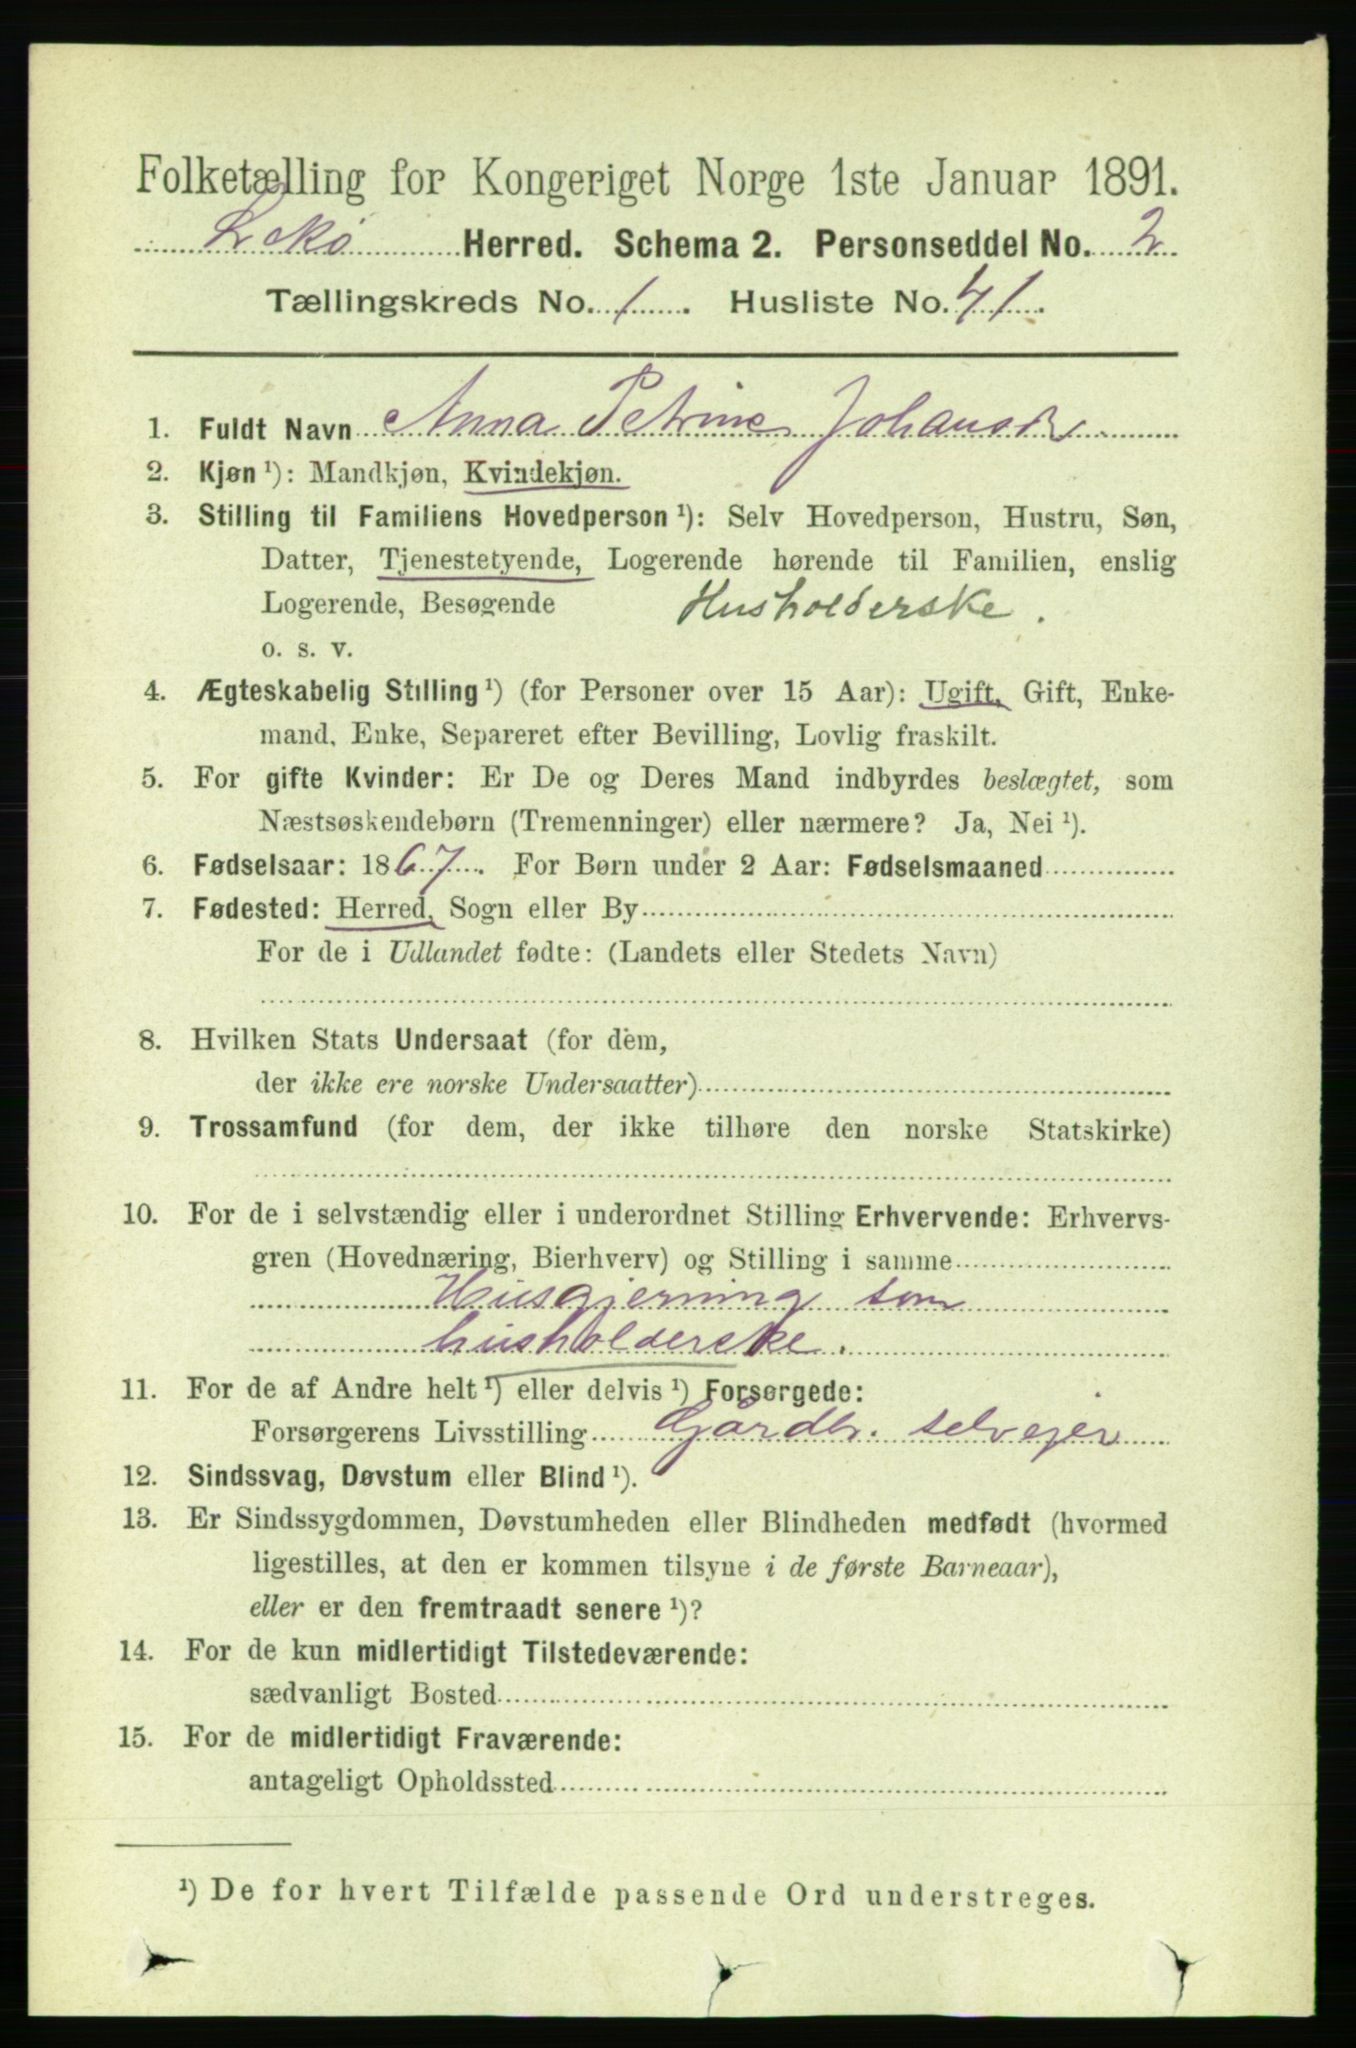 Folketælling for Kongeriget Norge 1ste Januar 1891.
Lekø Herred. Schema 2. Personseddel No. 2
Tællingskreds No. 1. Husliste No. 41.
1. Fuldt Navn Anna Petrine Johansdr
2. Kjøn ¹): Mandkjøn, Kvindekjøn.
3. Stilling til Familiens Hovedperson ¹): Selv Hovedperson, Hustru, Søn,
Datter, Tjenestetyende, Logerende hørende til Familien, enslig
Logerende, Besøgende Husholderske.
o. s. v.
4. Ægteskabelig Stilling ¹) (for Personer over 15 Aar): Ugift, Gift, Enke-
mand, Enke, Separeret efter Bevilling, Lovlig fraskilt.
5. For gifte Kvinder: Er De og Deres Mand indbyrdes beslægtet, som
Næstsøskendebørn (Tremenninger) eller nærmere? Ja, Nei ¹).
6. Fødselsaar: 1867. For Børn under 2 Aar: Fødselsmaaned
7. Fødested: Herred, Sogn eller By
For de i Udlandet fødte: (Landets eller Stedets Navn)
8. Hvilken Stats Undersaat (for dem,
der ikke ere norske Undersaatter)
9. Trossamfund (for dem, der ikke tilhøre den norske Statskirke)
10. For de i selvstændig eller i underordnet Stilling Erhvervende: Erhvervs-
gren (Hovednæring, Bierhverv) og Stilling i samme
Husgjerning som
husholderske.
11. For de af Andre helt ¹) eller delvis ¹) Forsørgede:
Forsørgerens Livsstilling Gårdbr. selvejer
12. Sindssvag, Døvstum eller Blind ¹).
13. Er Sindssygdommen, Døvstumheden eller Blindheden medfødt (hvormed
ligestilles, at den er kommen tilsyne i de første Barneaar),
eller er den fremtraadt senere ¹)?
14. For de kun midlertidigt Tilstedeværende:
sædvanligt Bosted
15. For de midlertidigt Fraværende:
antageligt Opholdssted
¹) De for hvert Tilfælde passende Ord understreges.